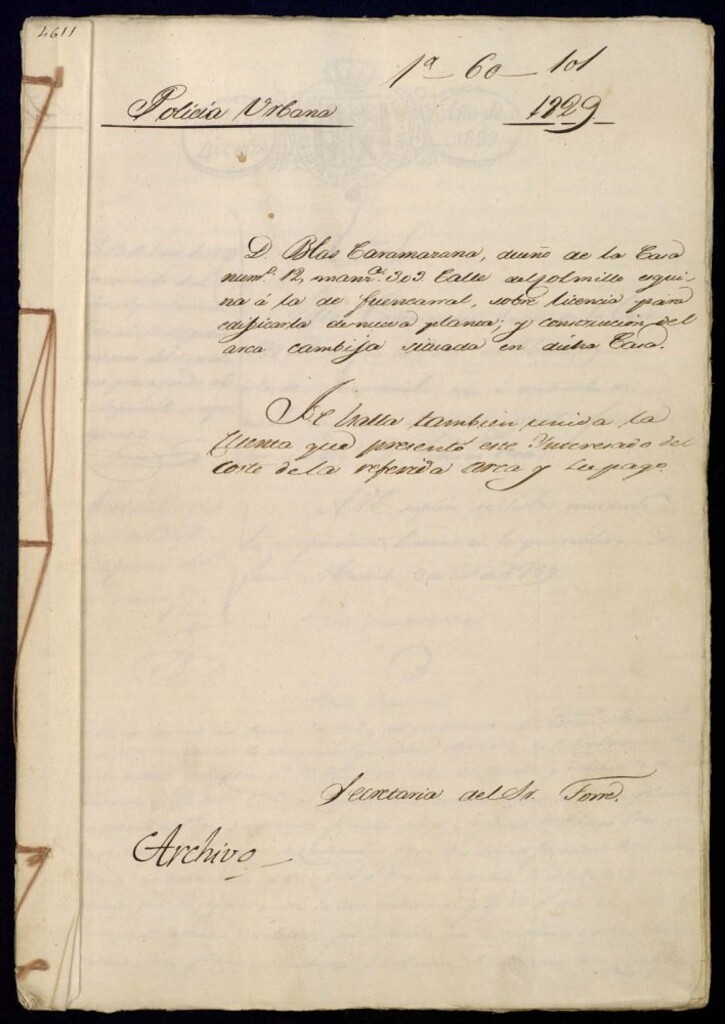 4611
1ª - 60 - 101
Policia Urbana
1829.
D. Blas Caramanzana, dueño de la Casa
numº. 12, manzª. 303. Calle del Colmillo esqui-
na á la de fuencarral, sobre licencia para
edificarla de nueva planta; y construccion del
arca cambija situada en dicha Casa.
Se halla tambien unida la
Cuenta que presentó este Interesado del
coste de la referida arca y su pago.
Secretaria del Sr. Torre.
Archivo